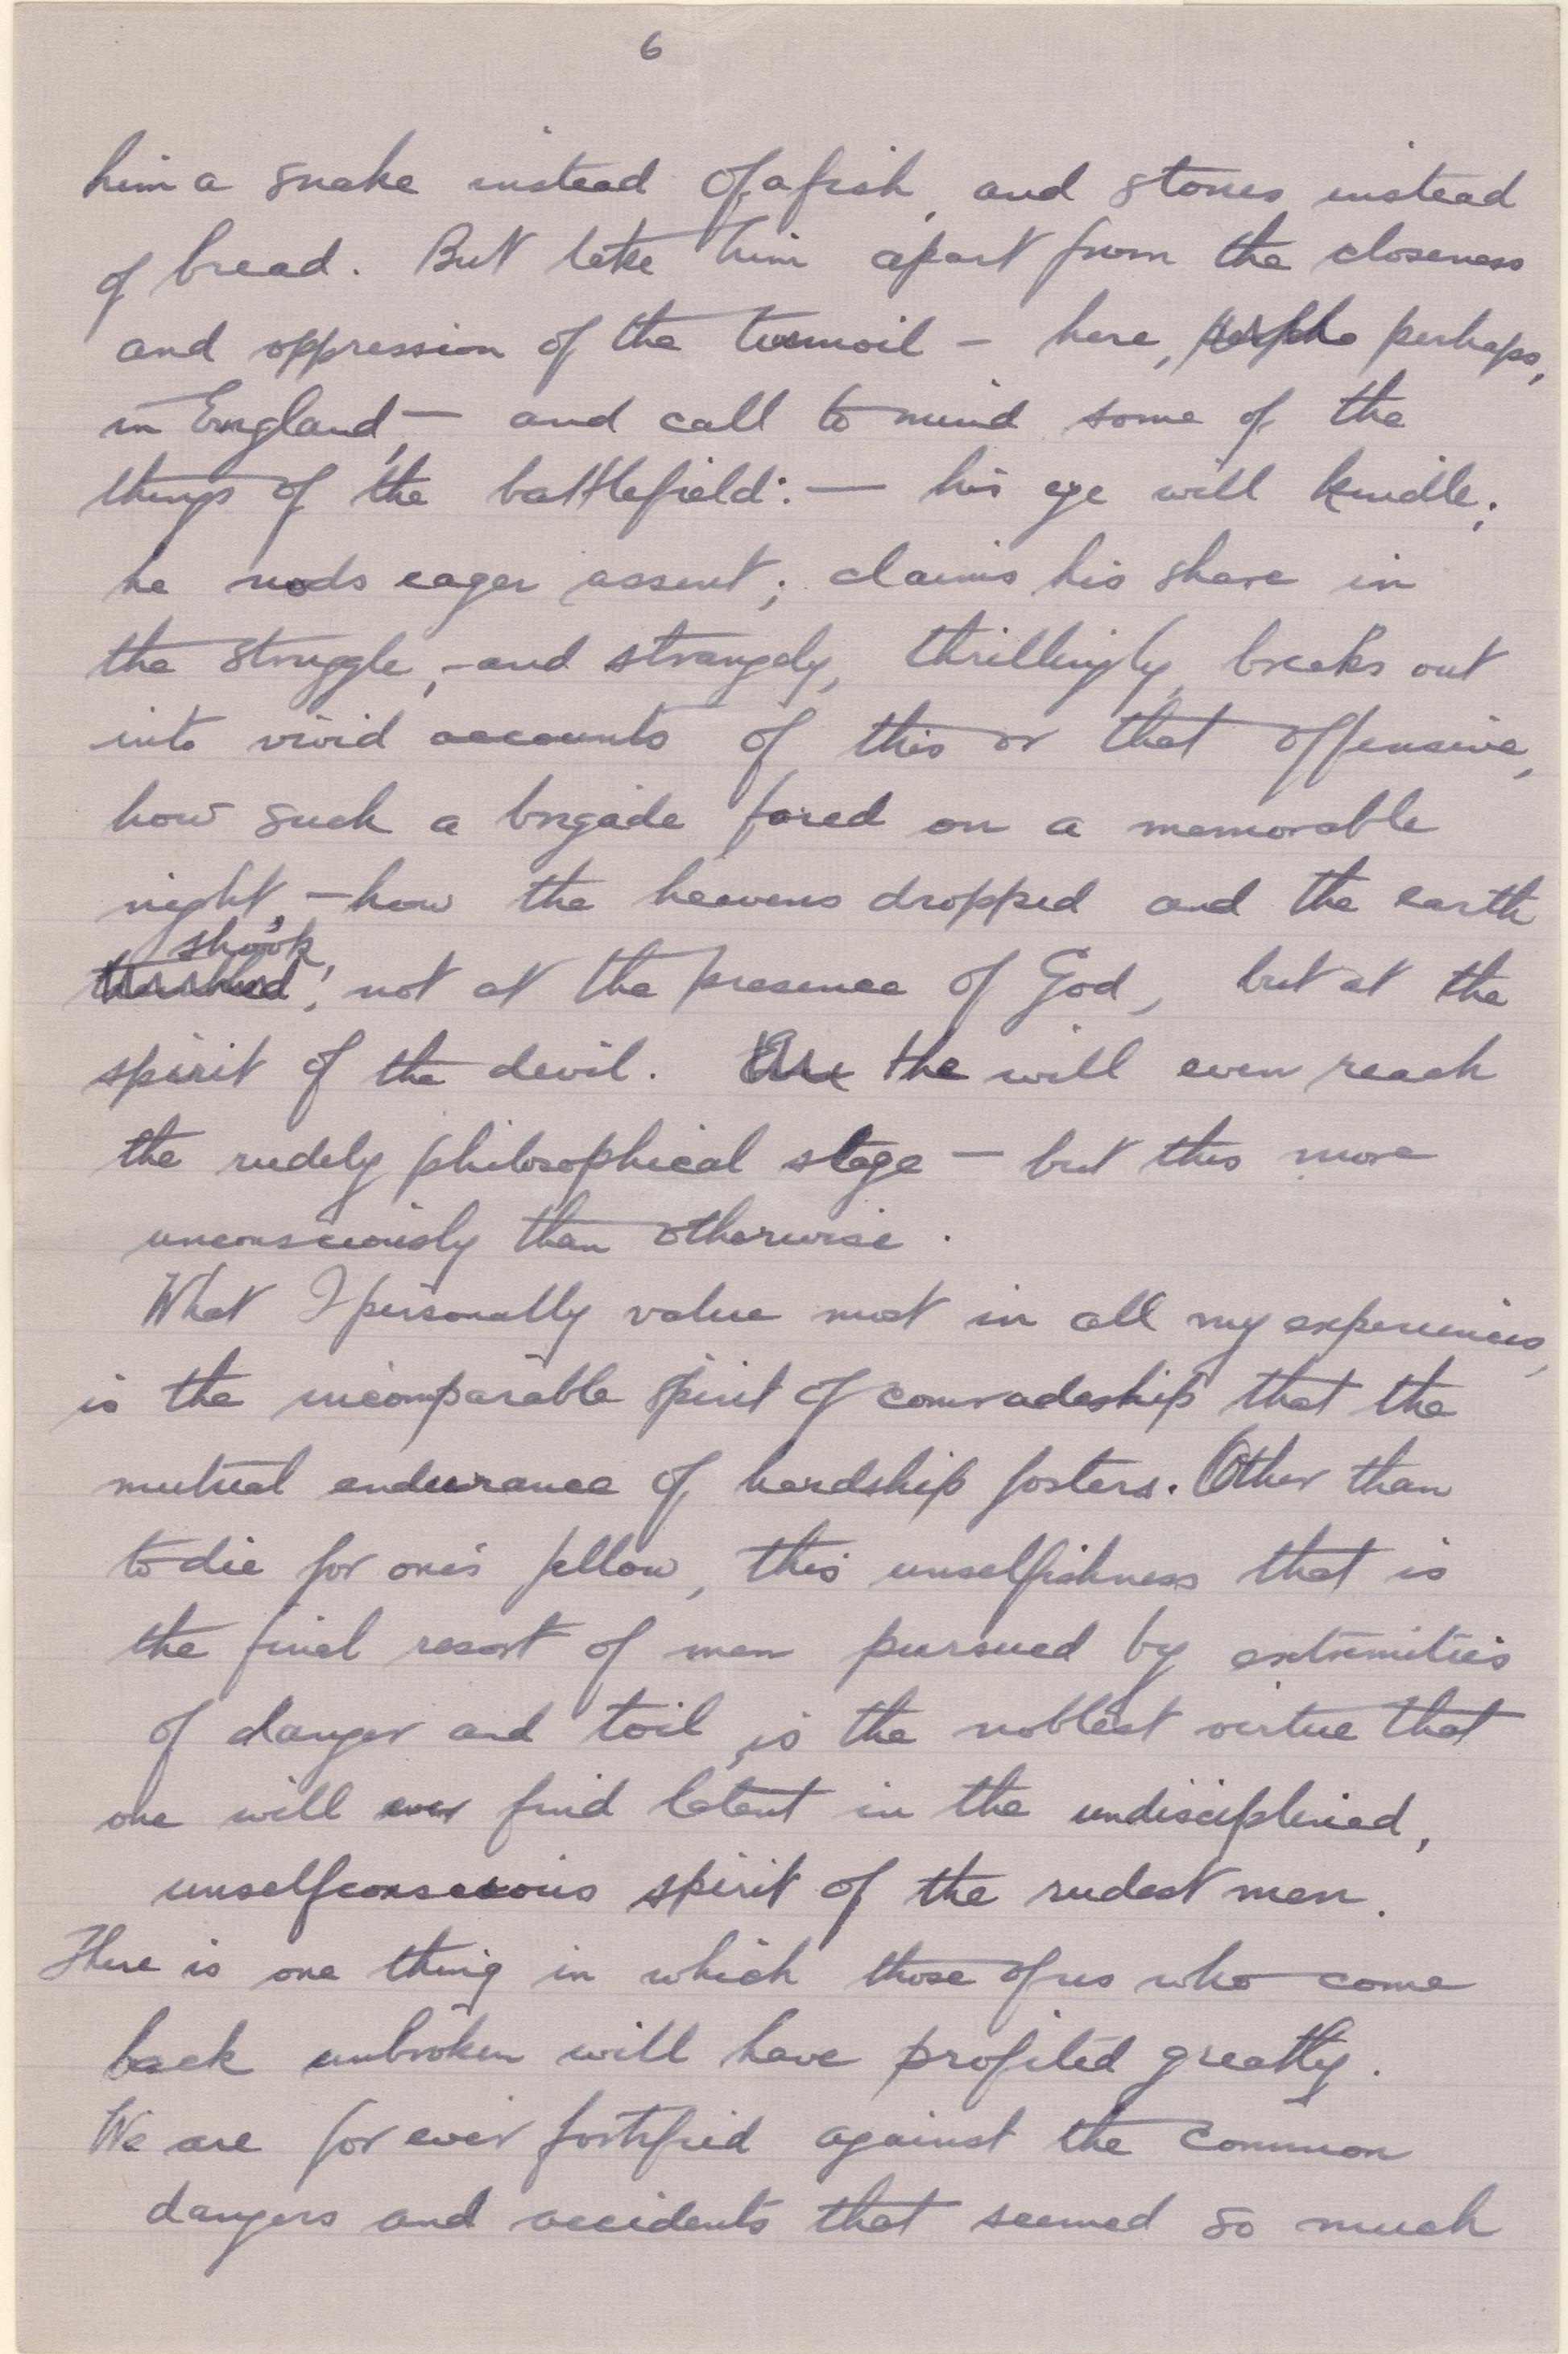 6
him a snake instead of a fish, and stones instead
of bread. But take him apart from the closeness
and oppression of the turmoil - here, perhaps,
in England, — and call to mind some of the
things of the battlefield: — his eye will kindle;
he nods eager assent; claims his share in
the struggle, - and strangely, thrillingly, breaks out
into vivid accounts of this or that offensive,
how such a brigade fared on a memorable
night, - how the heavens dropped and the earth
shook,
not at the presence of God, but at the
spirit of the devil. the will even reach
the rudely philosophical stage — but this more
unconsciously than otherwise.
What I personally value most in all my experiences,
is the incomparable spirit of comradeship that the
mutual endurance of hardship fosters. Other than
to die for one's fellow, this unselfishness that is
the final resort of men pursued by extremities
of danger and toil, is the noblest virtue that
one will ever find latent in the undisciplined,
unselfconscious spirit of the rudest men.
There is one thing in which those of us who come
back unbroken will have profited greatly.
We are for ever fortified against the common
dangers and accidents that seemed so much